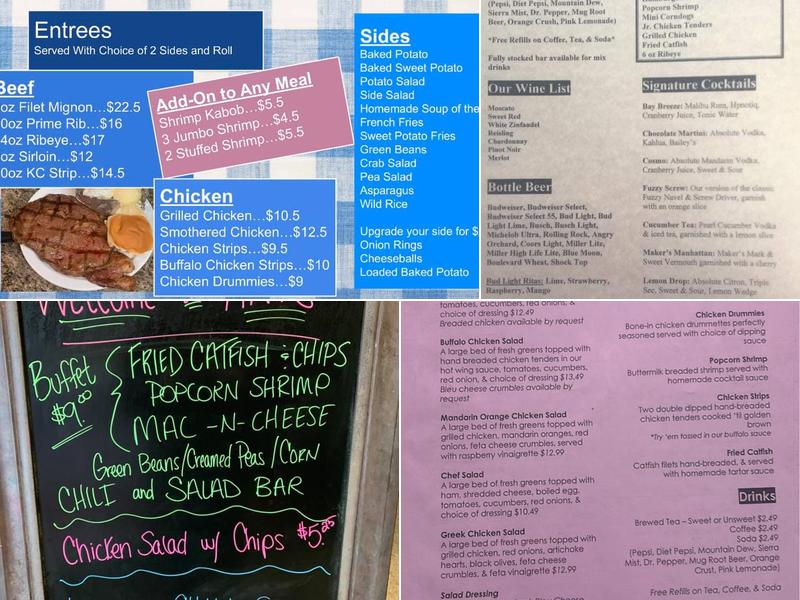 Entrees
Served With Choice of 2 Sides and Roll
Beef
oz Filet Mignon…$22.5
0oz Prime Rib…$16
4oz Ribeye…$17
oz Sirloin…$12
0oz KC Strip…$14.5
Add-On to Any Meal
Shrimp Kabob…$5.5
3 Jumbo Shrimp…$4.5
2 Stuffed Shrimp…$5.5
Chicken
Grilled Chicken…$10.5
Smothered Chicken…$12.5
Chicken Strips…$9.5
Buffalo Chicken Strips…$10
Chicken Drummies…$9
Sides
Baked Potato
Baked Sweet Potato
Potato Salad
Side Salad
Homemade Soup of the
French Fries
Sweet Potato Fries
Green Beans
Crab Salad
Pea Salad
Asparagus
Wild Rice
Upgrade your side for $
Onion Rings
Cheeseballs
Loaded Baked Potato
(Pepsi, Diet Pepsi, Mountain Dew,
Sierra Mist, Dr. Pepper, Mug Root
Beer, Orange Crush, Pink Lemonade)
*Free Refills on Coffee, Tea, & Soda*
Fully stocked bar available for mix
drinks
Our Wine List
Moscato
Sweet Red
White Zinfandel
Reisling
Chardonnay
Pinot Noir
Merlot
Bottle Beer
Budweiser, Budweiser Select,
Budweiser Select 55, Bud Light, Bud
Light Lime, Busch, Busch Light,
Michelob Ultra, Rolling Rock, Angry
Orchard, Coors Light, Miller Lite,
Miller High Life Lite, Blue Moon,
Boulevard Wheat, Shock Top
Bud Light Ritas: Lime, Strawberry,
Raspberry, Mango
Popcorn Shrimp
Mini Corndogs
Jr. Chicken Tenders
Grilled Chicken
Fried Catfish
6 oz Ribeye
Signature Cocktails
Bay Breeze: Malibu Rum, Hpnotiq,
Cranberry Juice, Tonic Water
Chocolate Martini: Absolute Vodka,
Kahlua, Bailey's
Cosmo: Absolute Mandarin Vodka,
Cranberry Juice, Sweet & Sour
Fuzzy Screw: Our version of the classic
Fuzzy Navel & Screw Driver, garnish
with an orange slice
Cucumber Tea: Pearl Cucumber Vodka
& iced tea, garnished with a lemon slice
Maker's Manhattan: Maker's Mark &
Sweet Vermouth garnished with a cherry
Lemon Drop: Absolute Citron, Triple
Sec, Sweet & Sour, Lemon Wedge
Welcome
Buffet
$9.00
FRIED CATFISH & CHIPS
POPCORN SHRIMP
MAC -N- CHEESE
Green Beans/Creamed Peas/CORN
CHILI and SALAD BAR
Chicken Salad w/ Chips $5.25
tomatoes, cucumbers, red onions, &
choice of dressing $12.49
Breaded chicken available by request
Buffalo Chicken Salad
A large bed of fresh greens topped with
hand breaded chicken tenders in our
hot wing sauce, tomatoes, cucumbers,
red onion, & choice of dressing $13.49
Bleu cheese crumbles available by
request
Mandarin Orange Chicken Salad
A large bed of fresh greens topped with
grilled chicken, mandarin oranges, red
onions, feta cheese crumbles, served
with raspberry vinaigrette $12.99
Chef Salad
A large bed of fresh greens topped with
ham, shredded cheese, boiled egg,
tomatoes, cucumbers, red onions, &
choice of dressing $10.49
Greek Chicken Salad
A large bed of fresh greens topped with
grilled chicken, red onions, artichoke
hearts, black olives, feta cheese
crumbles, & feta vinaigrette $12.99
Salad Dressing
Chicken Drummies
Bone-in chicken drummettes perfectly
seasoned served with choice of dipping
sauce
Popcorn Shrimp
Buttermilk breaded shrimp served with
homemade cocktail sauce
Chicken Strips
Two double dipped hand-breaded
chicken tenders cooked 'til golden
brown
*Try 'em tossed in our buffalo sauce
Fried Catfish
Catfish filets hand-breaded, & served
with homemade tartar sauce
Drinks
Brewed Tea – Sweet or Unsweet $2.49
Coffee $2.49
Soda $2.49
(Pepsi, Diet Pepsi, Mountain Dew, Sierra
Mist, Dr. Pepper, Mug Root Beer, Orange
Crush, Pink Lemonade)
Free Refills on Tea, Coffee, & Soda